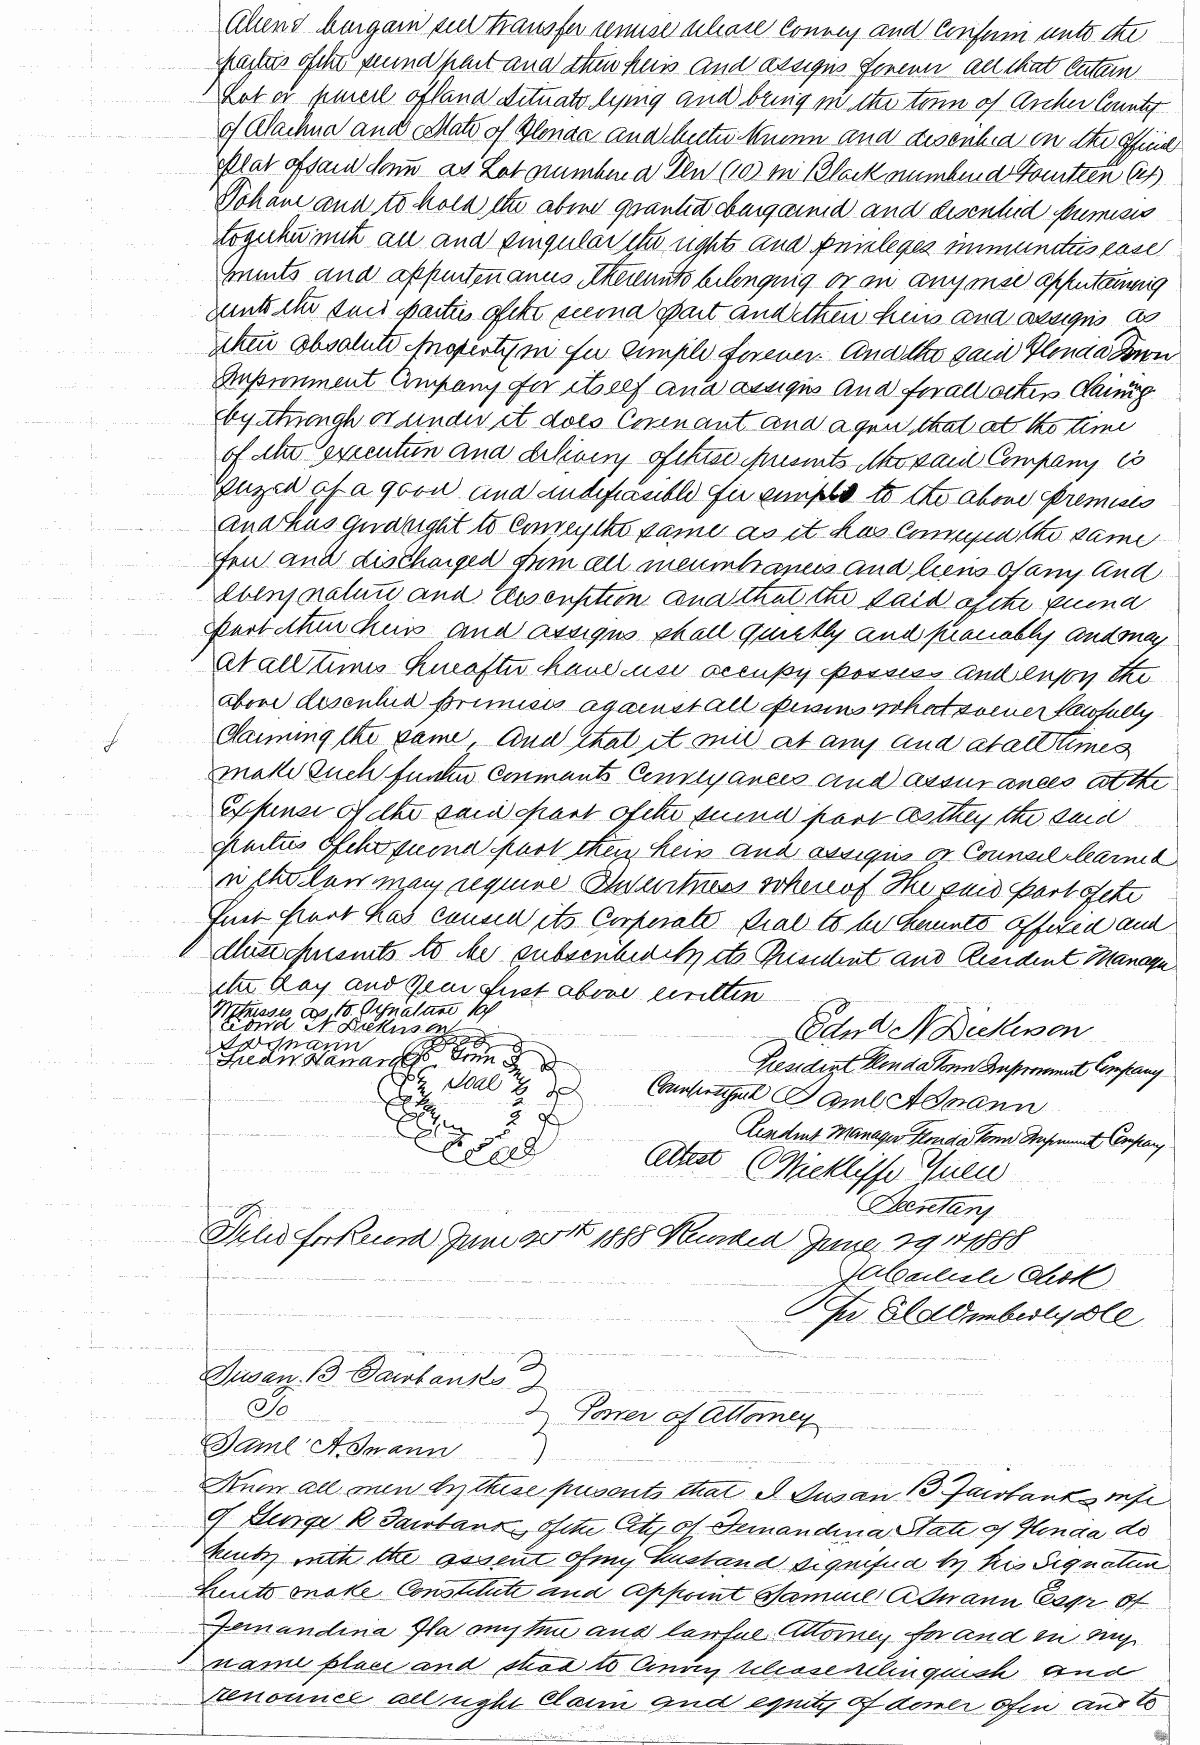 Aliend bargain sell transfer remise release Convey and Confirm unto the
parties of the second part and their heirs and assigns forever all that Certain
Lot or parcel of land situate lying and being in the town of Archer County
of Alachua and State of Florida and better Known and described on the official
plat of said town as Lot numbered Ten (10) in Block numbered Fourteen (14)
To have and to hold the above granted bargained and described premises
together with all and singular the rights and privileges immunities ease
ments and appurtenances thereunto belonging or in anywise appertaining
unto the said parties of the second part and their heirs and assigns as
their absolute property in fee simple forever. And the said Florida Town
Improvment Company for itself and assigns and for all others Claiming
by through or under it does Covenant and agree that at the time
of the execution and delivery of these presents the said Company is
seized of a good and indefeasible fee simple to the above premises
and has good right to Convey the same as it has Conveyed the same
free and discharged from all incumbrances and liens of any and
every nature and description and that the said of the second
part their heirs and assigns shall quietly and peaceably and may
at all times hereafter have use occupy possess and enjoy the
above described premises against all persons whatsoever lawfully
Claiming the same, And that it will at any and at all times
make such further Convenants Conveyances and assurances at the
expense of the said part of the second part as they the said
parties of the second part their heirs and assigns or Counsel learned
in the law may require In witness whereof The said part of the
first part has caused its Corporate Seal to be hereunto affixed and
these presents to be subscribed by its President and Resident Manager
the day and year first above written
Witnesses as to Signature of
Edwd N Dickerson
Edwd N Dickerson
S A Swann
President Florida Town Improvment Company
Fredr
Town
Seal
Countersigned Saml A Swann
Resident Manager Florida Town Improvment Company
Attest Wickliffe Yulee
Secretary
Filed for Record June th 1888 Recorded June 29th 1888
J A Carlisle Clerk
Per Wimberly D C
Susan. B Fairbanks
To
Power of Attorney
Saml A. Swann
Know all men by these presents that I Susan B Fairbanks wife
of George R Fairbanks, of the City of Fernandina State of Florida do
hereby with the assent of my husband signified by his Signature
hereto make Constitute and appoint Samuel A Swann Esqr of
Fernandina Fla my true and lawful Attorney for and in my
name place and stead to Convey release relinquish and
renounce all right Claim and equity of dower of in and to